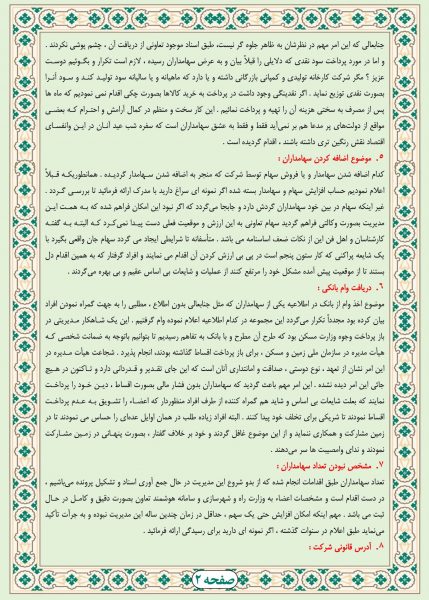 جنابعالی که این امر مهم در نظرشان به ظاهر جلوه گر نیست، طبق اسناد موجود تعاونی از دریافت آن ، چشم پوشی نکردند .
و اما در مورد پرداخت سود نقدی که دلایلی را قبلاً بیان و به عرض سهامداران رسیده ، لازم است تکرار و بگوئیم دوست
عزیز ؟ مگر شرکت کارخانه تولیدی و کمپانی بازرگانی داشته و یا دارد که ماهیانه و یا سالیانه سود تولید کند و سود آنرا
بصورت نقدی توزیع نماید . اگر نقدینگی وجود داشت در پرداخت به خرید کالاها بصورت چکی اقدام نمی نمودیم که ماه ها
پس از مصرف به سختی هزینه آن را تهیه و پرداخت نمائیم . این کار سخت و منظم در کمال آرامش و احترام کـه بعضـی
مواقع از دولت‌های پر مدعا هم بر نمی‌آید فقط و فقط به عشق سهامداران است که سفره شب عید آنـان در ایـن وانفسـای
اقتصاد نقش رنگین تری داشته باشند ، اقدام گردیده است .
۵. موضوع اضافه کردن سهامداران :
کدام اضافه شدن سهامدار و یا فروش سهام توسط شرکت که منجر به اضافه شدن سـهامدار گردیـده . همانطوریکـه قـبلاً
اعلام نمودیم حساب افزایش سهام و سهامدار بسته شده اگر نمونه ای سراغ دارید با مدرک ارائه فرمائید تا بررسی گـردد .
غیر اینکه سهام در بین خود سهامداران گردش دارد و جابجا می‌گردد که اگر نبود این امکان فراهم شده که بـه همـت ایـن
مدیریت بصورت وکالتی فراهم گردید سهام تعاونی به این ارزش و موقعیت فعلی دست پیدا نمی‌کـرد کـه البتـه بـه گفتـه
کارشناسان و اهل فن این از نکات ضعف اساسنامه می باشد . متأسفانه تا شرایطی ایجاد می گردد سهام جان واقعی بگیرد با
یک شایعه پراکنی که کار ستون پنجم است در پی بی ارزش کردن آن اقدام می نمایند و افراد گرفتار که به همین اقدام دل
بستند تا از موقعیت پیش آمده مشکل خود را مرتفع کنند از عملیات و شایعات بی اساس عقیم و بی بهره می‌گردند .
۶. دریافت وام بانکی :
موضوع اخذ وام از بانک در اطلاعیه یکی از سهامداران که مثل جنابعالی بدون اطلاع ، مطلبی را به جهت گمراه نمودن افراد
بیان کرده بود مجدداً تکرار می‌گردد این مجموعه در کدام اطلاعیه اعلام نموده وام گرفتیم . این یک شاهکار مدیریتی در
باز پرداخت وجوه وزارت مسکن بود که طرح آن مطرح و با بانک به تفاهم رسیدیم تا بتوانیم باتوجه به ضمانت شخصی کـه
هیأت مدیره در سازمان ملی زمین و مسکن ، برای باز پرداخت اقساط گذاشته بودند، انجام پذیرد . شجاعت هیأت مـدیره در
این امر نشان از تعهد ، نوع دوستی ، صداقت و امانتداری آنان است که این جای تقدیر و قدردانی دارد و تـاکنون در هـیچ
جائی این امر دیده نشده . این امر مهم باعث گردید که سهامداران بدون فشار مالی بصورت اقساط ، دیـن خـود را پرداخـت
نمایند که بعلت شایعات بی اساس و شاید هم گمراه کننده از طرف افراد منظوردار که اعضـاء را تشـویق بـه عـدم پرداخـت
اقساط نمودند تا شریکی برای تخلف خود پیدا کنند . البته افراد زیاده طلب در همان اوایل عده‌ای را حساس می نمودند تا در
زمین مشارکت و همکاری ننماید و از این موضوع غافل گردند و خود بر خلاف گفتار ، بصورت پنهـانی در زمـین مشـارکت
نمودند و ندای وامصیبت ها سر می‌دهند .
۷. مشخص نبودن تعداد سهامداران :
تعداد سهامداران طبق اقدامات انجام شده که از بدو شروع این مدیریت در حال جمع آوری اسناد و تشکیل پرونده می‌باشیم ،
در دست اقدام است و مشخصات اعضاء به وزارت راه و شهرسازی و سامانه هوشمند تعاون بصورت دقیق و کامـل در حـال
ثبت می باشد . مهم اینکه امکان افزایش حتی یک سهم ، حداقل در زمان چندین ساله این مدیریت نبوده و به جرأت تأکید
می‌نماید طبق اعلام در سنوات گذشته ، اگر نمونه ای دارید برای رسیدگی ارائه فرمائید .
۸. آدرس قانونی شرکت :
صفحه ۲